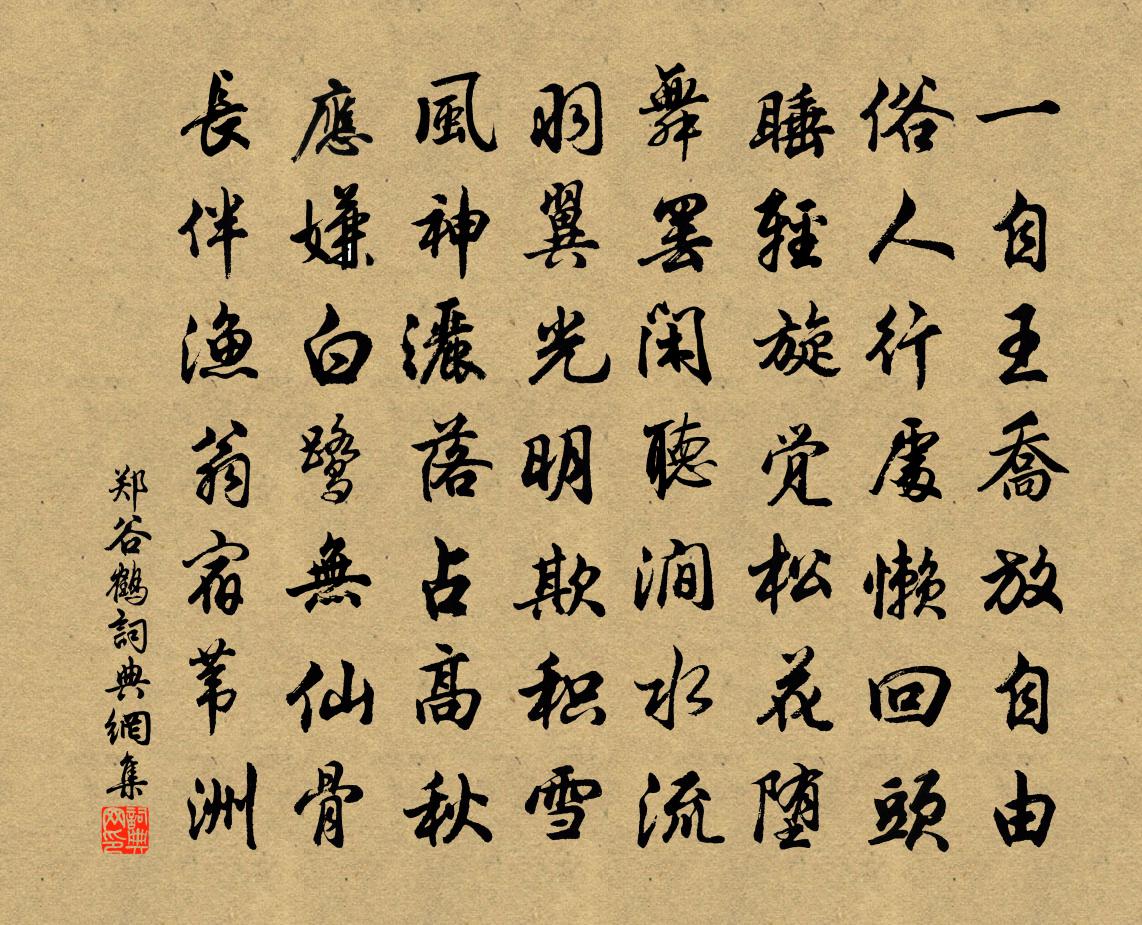 一自王喬放自由
俗人行處懶回頭
睡輕旋觉松花堕
舞罢閑聽澗水流
羽翼光明欺积雪
風神灑落占高秋
應嫌白鷺無仙骨
長伴漁翁宿苇洲
郑谷鶴詞典網集
詞典網印